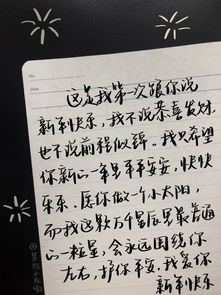 这是我第一次跟你说
新年快乐，我不说恭喜发财
也不说前程似锦。我只希望
你新的一年里平平安安，快快
乐乐。愿你做一个小太阳，
而我这数万个星辰里最普通
的一粒星，会永远围绕你
左右，护你平安，我爱你
新年快乐